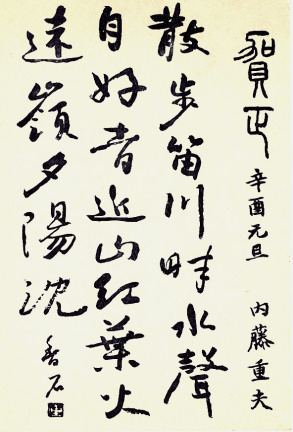 賀正 辛酉元旦 内藤重夫
散歩笛川畔水聲
自好音近山紅葉火
遠嶺夕陽沈